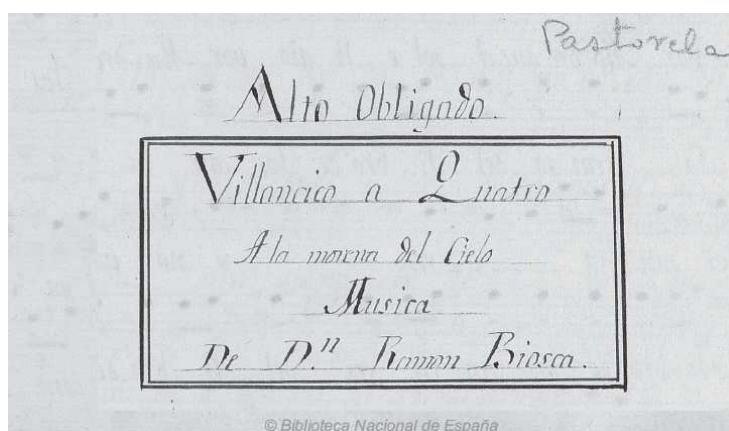 Pastorela
Alto Obligado.
Villancico a Quatro
A la morena del Cielo
Musica
De D.ⁿ Ramon Biosca.
© Biblioteca Nacional de España